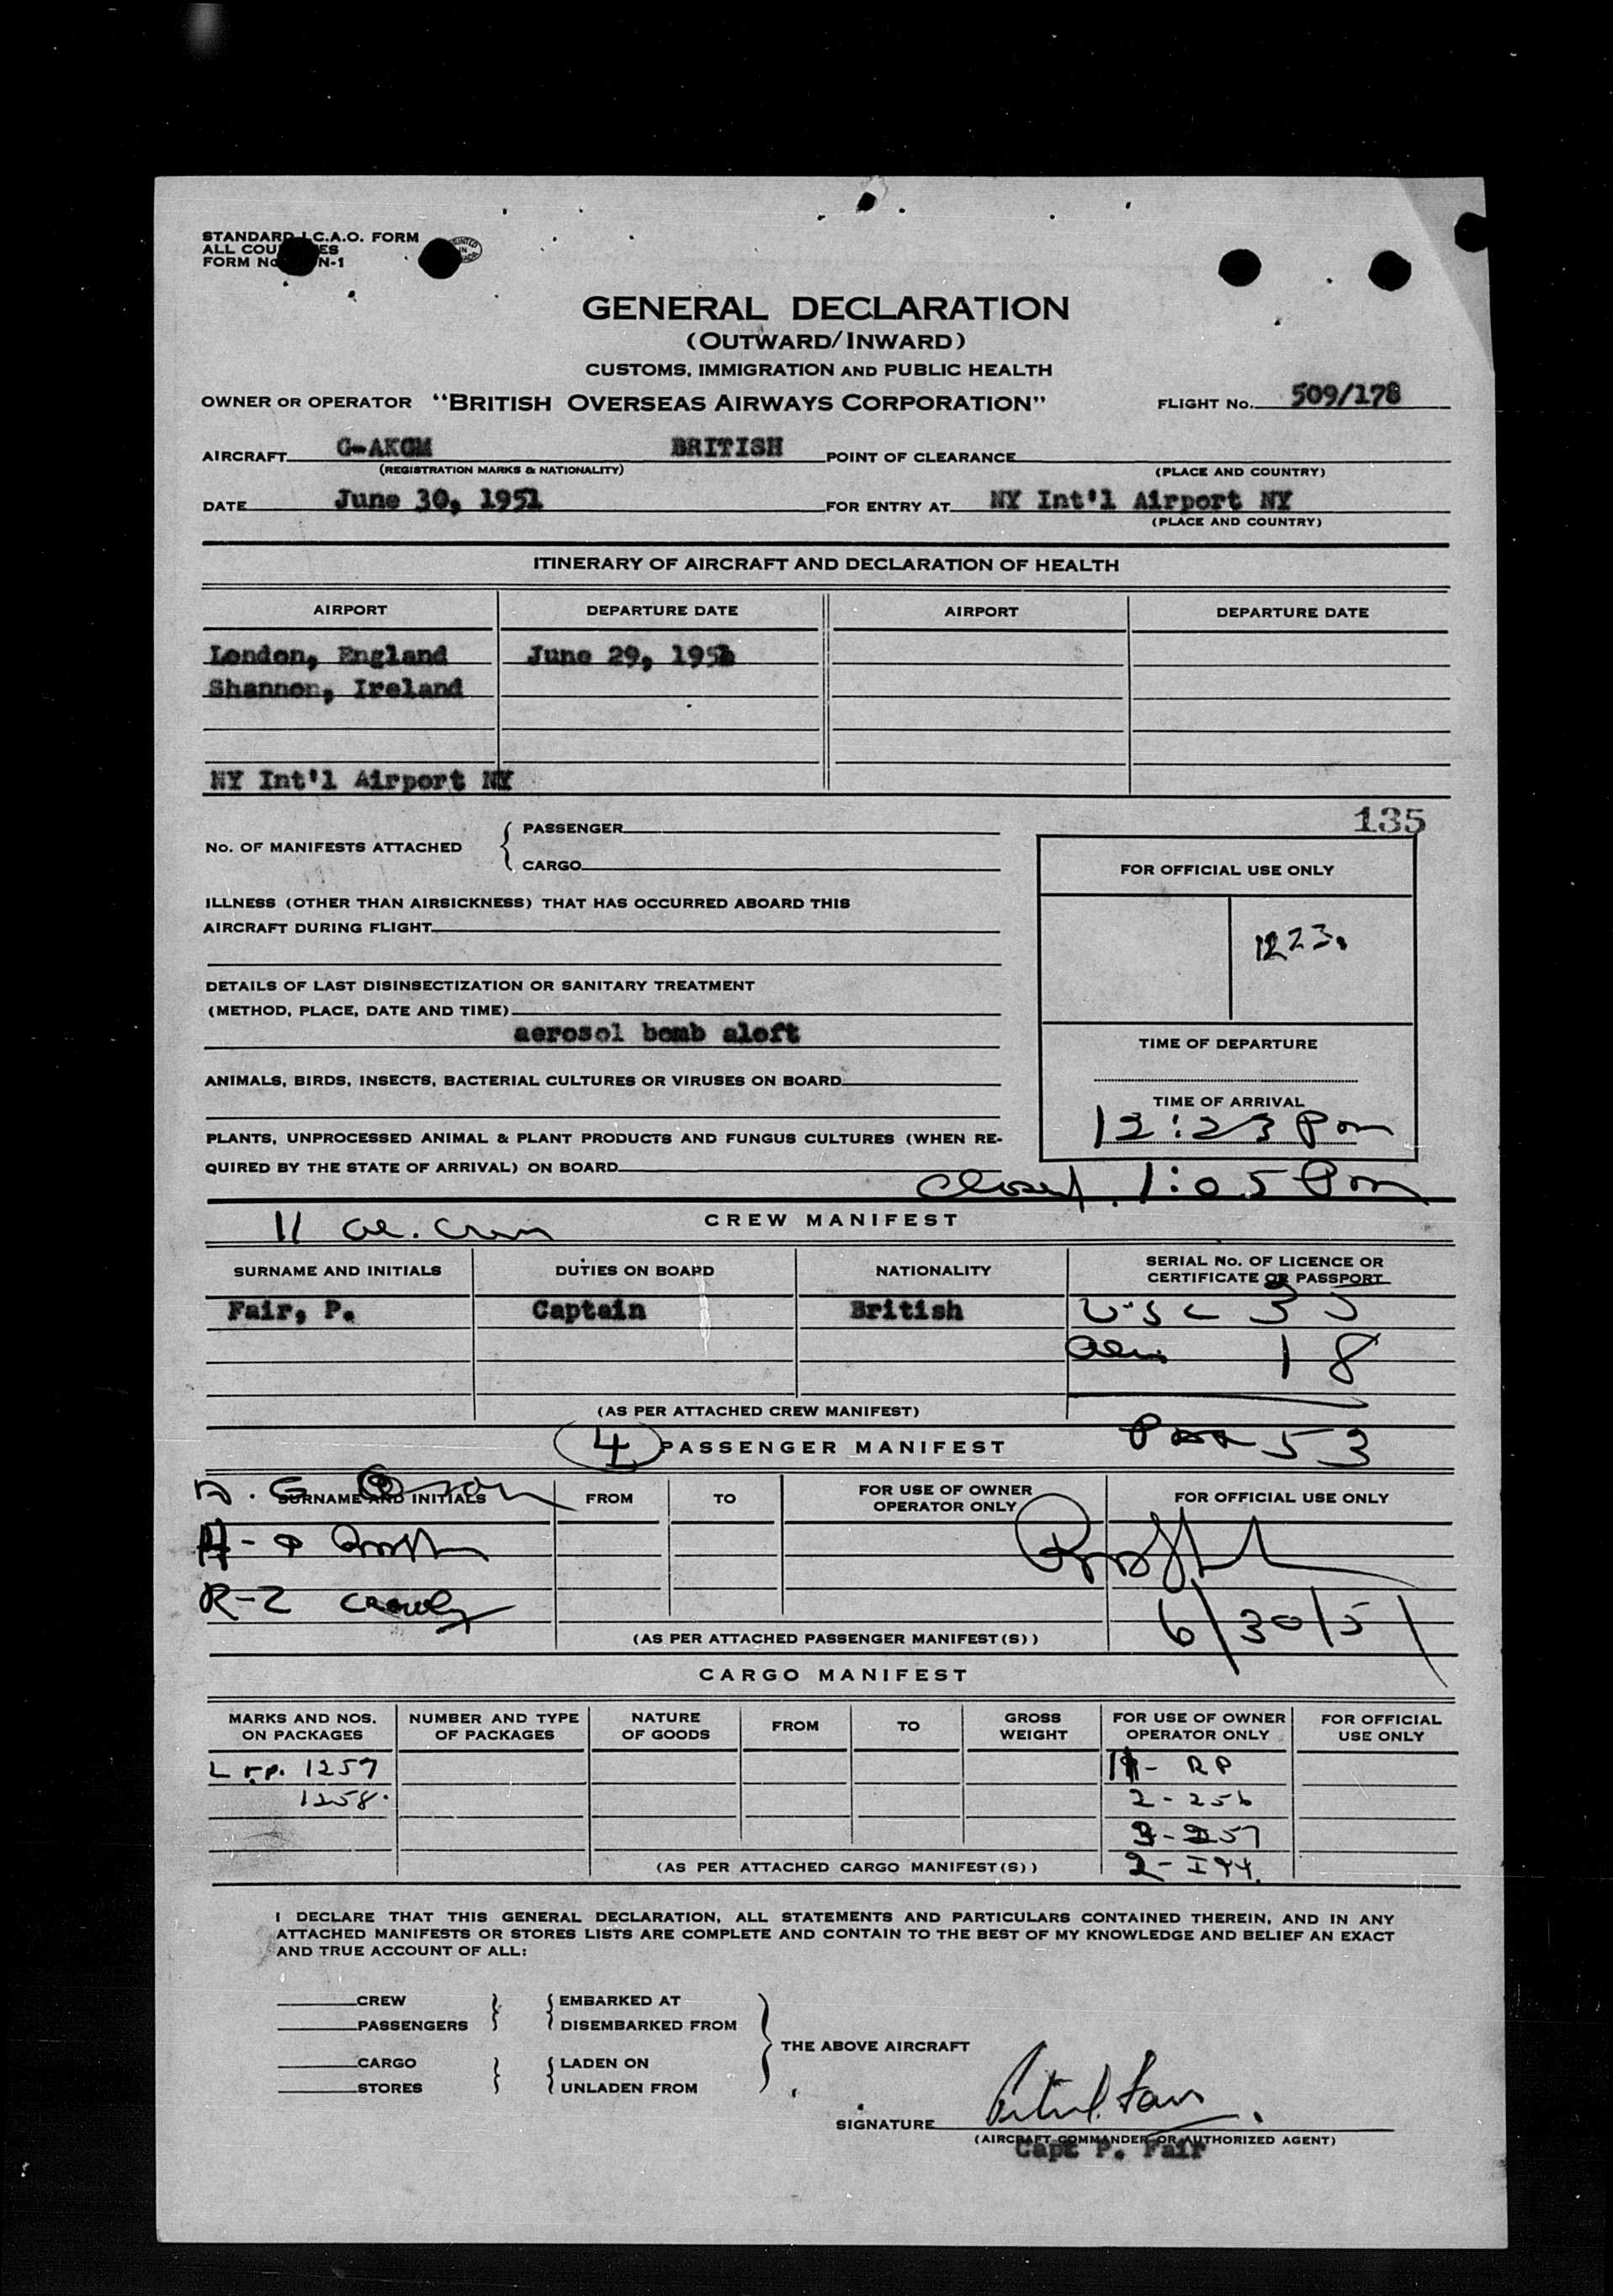 STANDARD I.C.A.O. FORM
ALL COU ES
FORM No N-1
GENERAL DECLARATION
(OUTWARD/INWARD)
CUSTOMS, IMMIGRATION AND PUBLIC HEALTH
OWNER OR OPERATOR "BRITISH OVERSEAS AIRWAYS CORPORATION" FLIGHT No. 509/178
AIRCRAFT G-AKGM BRITISH POINT OF CLEARANCE
(REGISTRATION MARKS & NATIONALITY) (PLACE AND COUNTRY)
DATE June 30, 1951 FOR ENTRY AT NY Int'l Airport NY
(PLACE AND COUNTRY)
ITINERARY OF AIRCRAFT AND DECLARATION OF HEALTH
AIRPORT DEPARTURE DATE AIRPORT DEPARTURE DATE
London, England June 29, 1951
Shannon, Ireland
NY Int'l Airport NY
135
No. OF MANIFESTS ATTACHED { PASSENGER
CARGO
FOR OFFICIAL USE ONLY
ILLNESS (OTHER THAN AIRSICKNESS) THAT HAS OCCURRED ABOARD THIS
AIRCRAFT DURING FLIGHT
1223.
DETAILS OF LAST DISINSECTIZATION OR SANITARY TREATMENT
(METHOD, PLACE, DATE AND TIME)
aerosol bomb aloft
TIME OF DEPARTURE
ANIMALS, BIRDS, INSECTS, BACTERIAL CULTURES OR VIRUSES ON BOARD
TIME OF ARRIVAL
12:23 Pm
PLANTS, UNPROCESSED ANIMAL & PLANT PRODUCTS AND FUNGUS CULTURES (WHEN RE-
QUIRED BY THE STATE OF ARRIVAL) ON BOARD
Closed. 1:05 Pm
11 al. Crew CREW MANIFEST
SURNAME AND INITIALS DUTIES ON BOARD NATIONALITY SERIAL No. OF LICENCE OR
CERTIFICATE OR PASSPORT
Fair, P. Captain British USC 35
Alien 18
(AS PER ATTACHED CREW MANIFEST)
4 PASSENGER MANIFEST Pax 53
SURNAME AND INITIALS FROM TO FOR USE OF OWNER
OPERATOR ONLY FOR OFFICIAL USE ONLY
R-2 Crowley
6/30/51
(AS PER ATTACHED PASSENGER MANIFEST(S))
CARGO MANIFEST
MARKS AND NOS.
ON PACKAGES NUMBER AND TYPE
OF PACKAGES NATURE
OF GOODS FROM TO GROSS
WEIGHT FOR USE OF OWNER
OPERATOR ONLY FOR OFFICIAL
USE ONLY
1257 - RP
1258. 2-256
257
(AS PER ATTACHED CARGO MANIFEST(S)) 2-I94.
I DECLARE THAT THIS GENERAL DECLARATION, ALL STATEMENTS AND PARTICULARS CONTAINED THEREIN, AND IN ANY
ATTACHED MANIFESTS OR STORES LISTS ARE COMPLETE AND CONTAIN TO THE BEST OF MY KNOWLEDGE AND BELIEF AN EXACT
AND TRUE ACCOUNT OF ALL:
CREW EMBARKED AT
PASSENGERS DISEMBARKED FROM
THE ABOVE AIRCRAFT
CARGO LADEN ON
STORES UNLADEN FROM
SIGNATURE
(AIRCRAFT COMMANDER OR AUTHORIZED AGENT)
Capt P. Fair